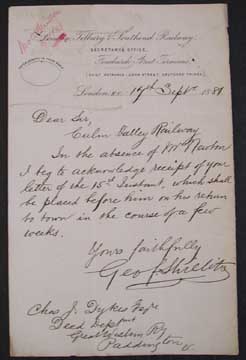 London, Tilbury & Southend Railway,
SECRETARY'S OFFICE,
Fenchurch Street Terminus,
London, E.C. 19th Sept 1881
Dear Sir,
Culm Valley Railway
In the absence of Mr Newton
I beg to acknowledge receipt of your
letter of the 15th Instant, which shall
be placed before him on his return
to town in the course of a few
weeks.
Yours faithfully
Geo
Chas J. Dykes Esqre
Deed Deptmt
Great Western Ry
Paddington